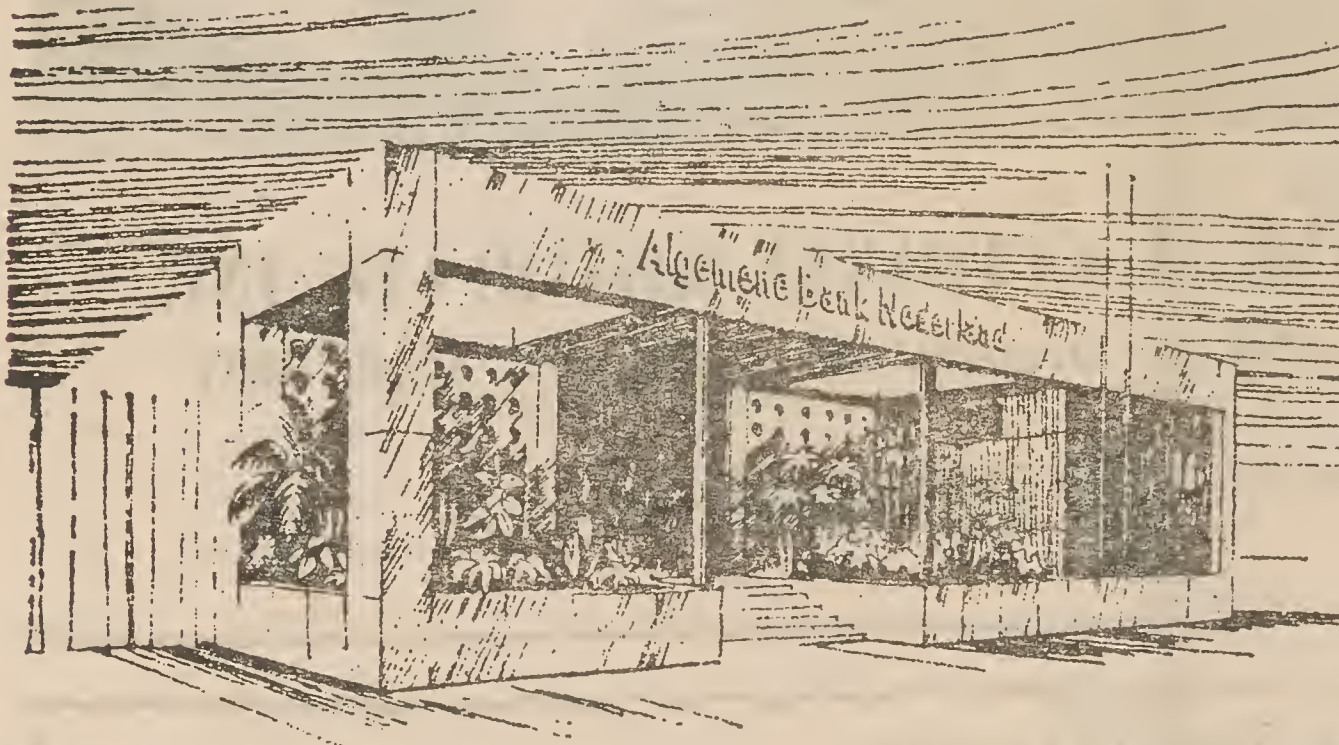 Algemene bank Nederland